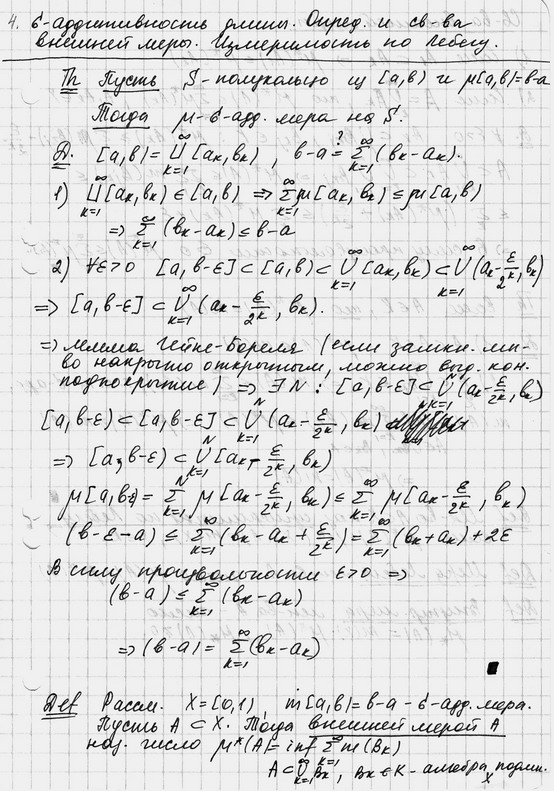 4. σ-аддитивность длины. Опред. и св-ва
внешней меры. Измеримость по Лебегу.
Th Пусть S-полукольцо из [a,b) и μ[a,b)=b-a
Тогда μ-σ-адд. мера на S.
D. [a,b)=⊔_{k=1}^{∞}[aₖ,bₖ), b-a ?= Σ_{k=1}^{∞}(bₖ-aₖ).
1) ⊔_{k=1}^{∞}[aₖ,bₖ)∈[a,b) ⇒ Σ_{k=1}^{∞}μ[aₖ,bₖ) ≤ μ[a,b)
⇒ Σ_{k=1}^{∞}(bₖ-aₖ) ≤ b-a
2) ∀ε>0 [a,b-ε]⊂[a,b)⊂⋃_{k=1}^{∞}[aₖ,bₖ)⊂⋃_{k=1}^{∞}(aₖ-ε/2ᵏ,bₖ)
⇒ [a,b-ε]⊂⋃_{k=1}^{∞}(aₖ-ε/2ᵏ,bₖ).
⇒ лемма Гейне-Бореля (если замкн. мн-
во накрыто открытым, можно выд. кон.
подпокрытие) ⇒ ∃N: [a,b-ε]⊂⋃_{k=1}^{N}(aₖ-ε/2ᵏ,bₖ)
[a,b-ε)⊂[a,b-ε]⊂⋃_{k=1}^{N}(aₖ-ε/2ᵏ,bₖ)
⇒ [a,b-ε)⊂⋃_{k=1}^{N}[aₖ-ε/2ᵏ,bₖ)
μ[a,b-ε)=Σ_{k=1}^{N}μ[aₖ-ε/2ᵏ,bₖ) ≤ Σ_{k=1}^{∞}μ[aₖ-ε/2ᵏ,bₖ)
(b-ε-a) ≤ Σ_{k=1}^{∞}(bₖ-aₖ+ε/2ᵏ)=Σ_{k=1}^{∞}(bₖ+aₖ)+2ε
В силу произвольности ε>0 ⇒
(b-a) ≤ Σ_{k=1}^{∞}(bₖ-aₖ)
⇒ (b-a) = Σ_{k=1}^{∞}(bₖ-aₖ)
Def Рассм. X=[0,1), m[a,b)=b-a-σ-адд.мера.
Пусть A⊂X. Тогда внешней мерой A
наз. число μ*(A)=inf Σ_{k=1}^{∞} m(Bₖ)
A⊂⋃_{k=1}^{∞}Bₖ, Bₖ∈K-алгебра подмн. X